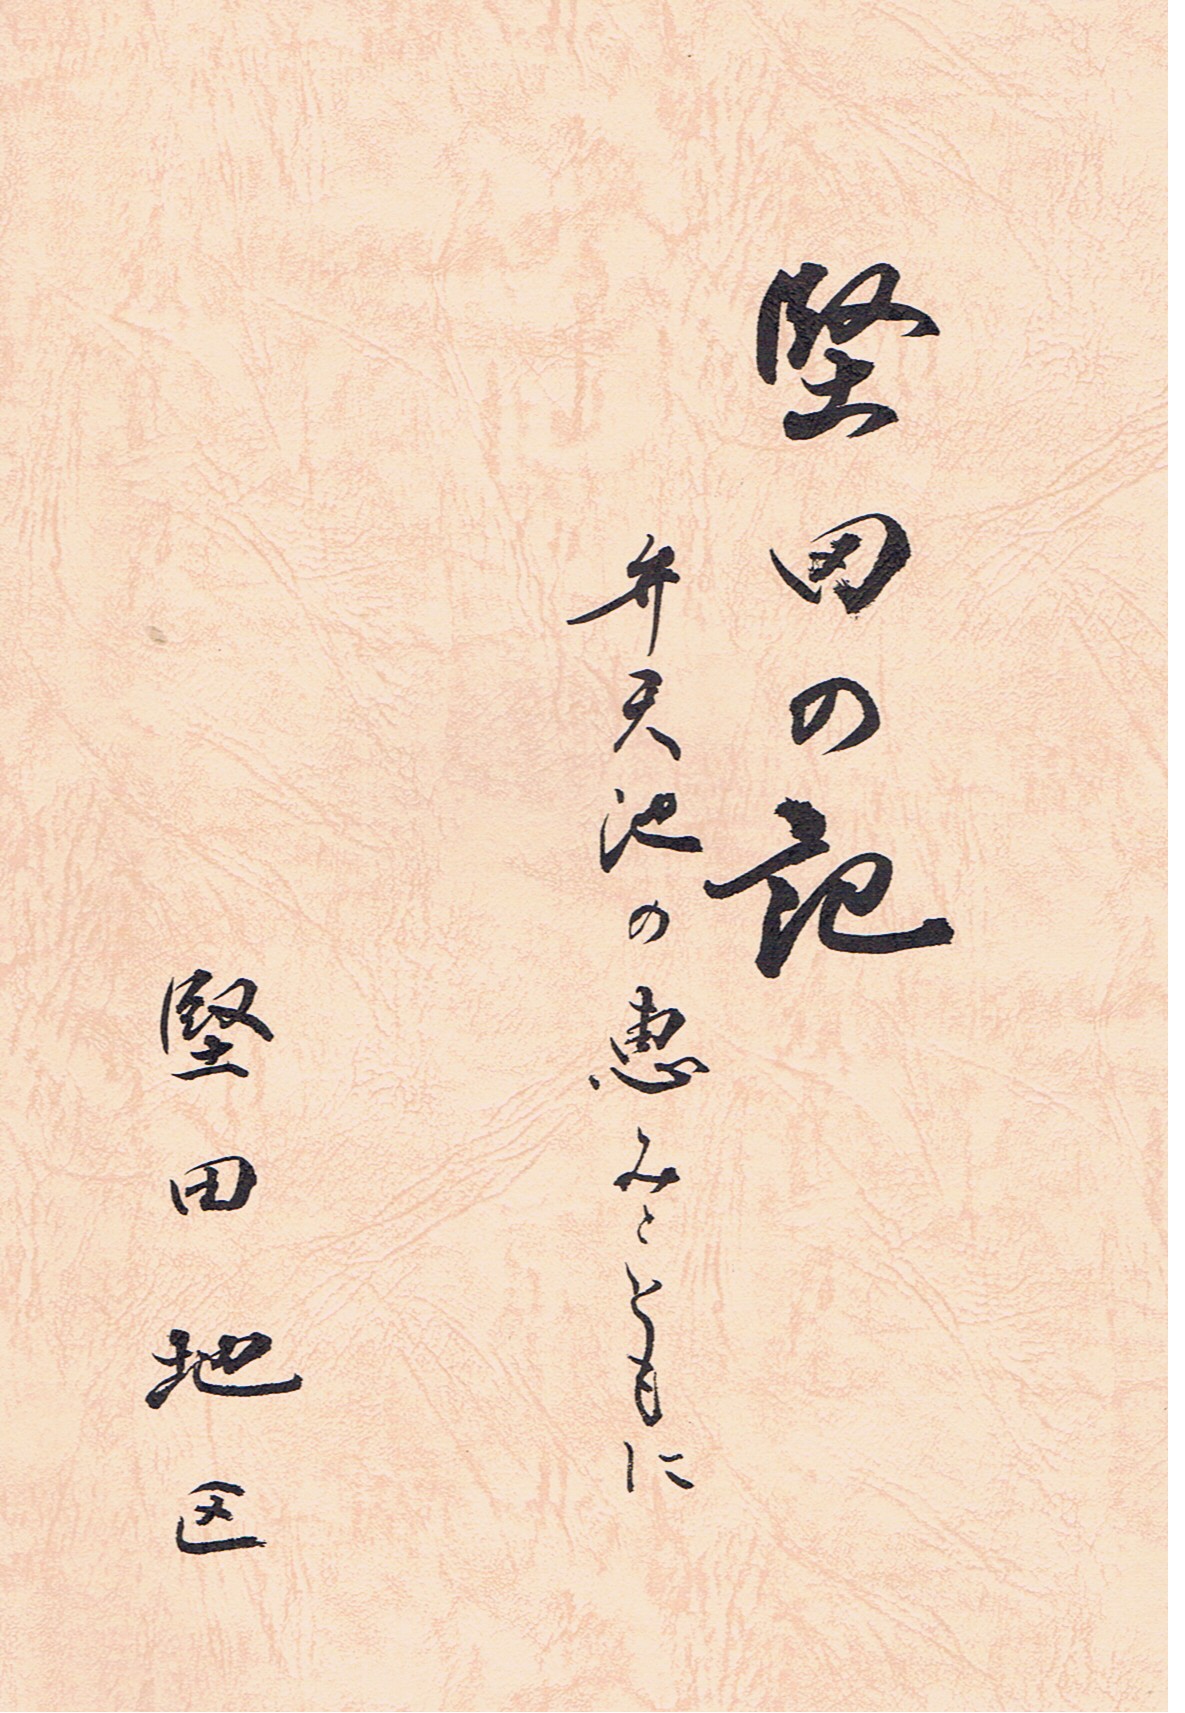 堅田の記
弁天池の恵みとともに
堅田地区